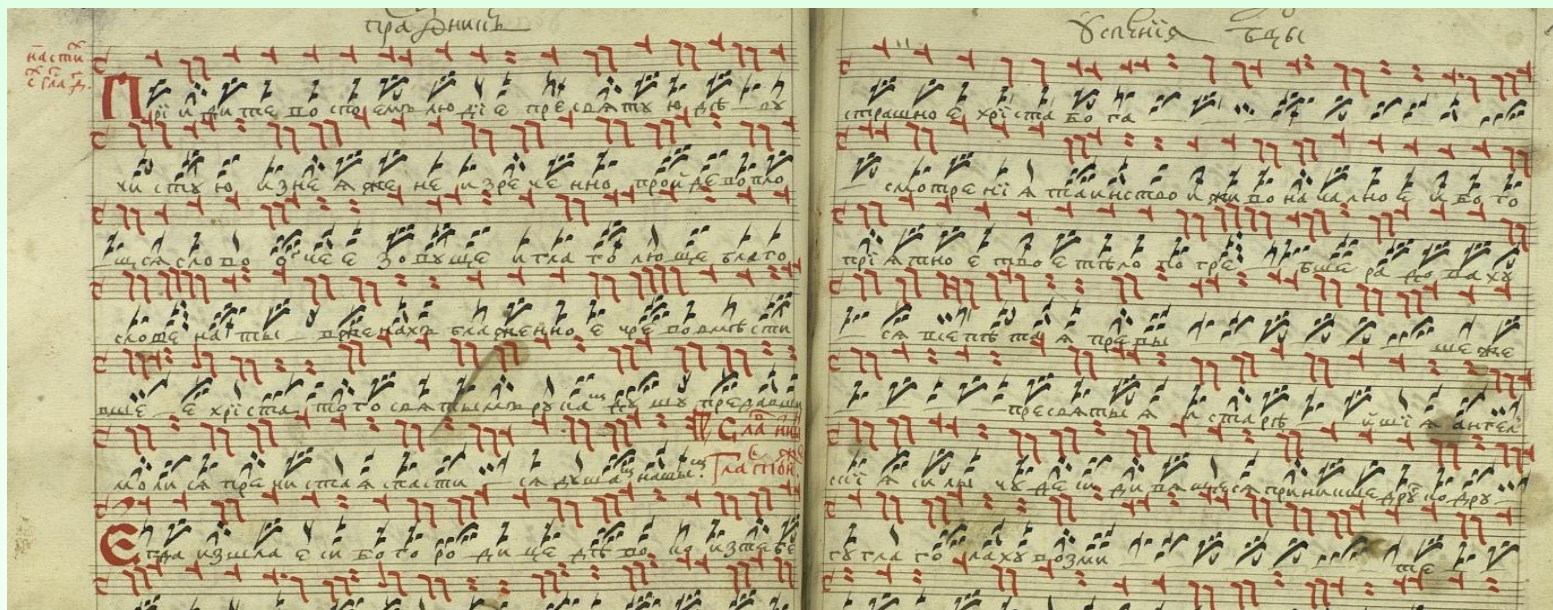 праздникъ
на сти
Прїидите воспоемъ людїе пресвятую дѣву
чистую изнея же неизреченно пройде вопло
щся слово отчее зовуще и глаголюще благо
словена ты вженахъ блаженное чрево вмѣсти
вшее хрїста того святыма рукама душу предавши
молися пречистая спастися душамъ нашымъ.
Егда изшла еси богородице дѣво изтебе
Успенїя бцы
страшное хрїста бога
смотренїя таинство и живоначалное и бого
прїятное твое тѣло погребше радоваху
ся предыше же
пресвятыя и старѣйшїя ангел
скїя силы чудеси дивящеся приникше дру
гу глаголаху возмите